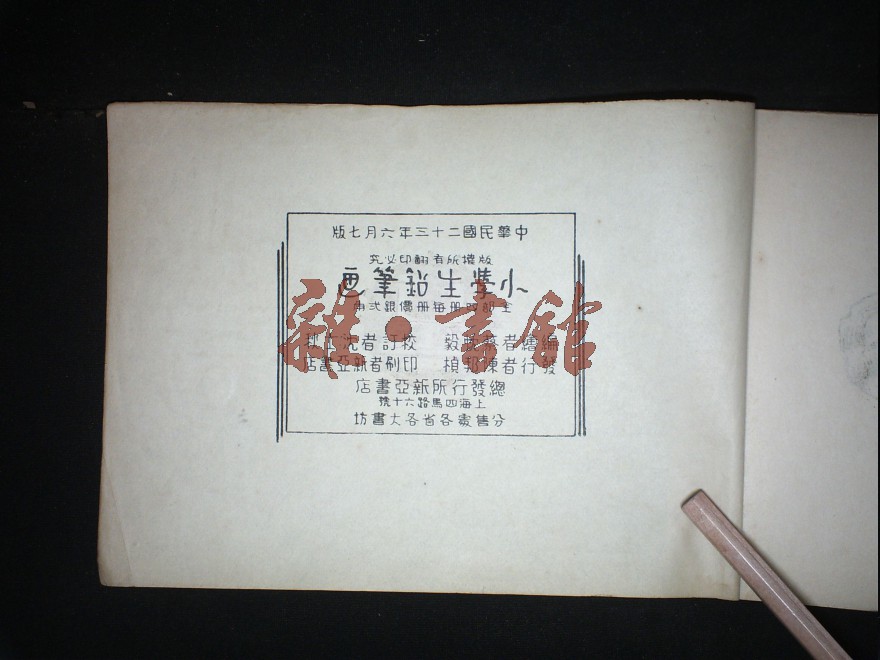 中華民國二十三年六月七版
版權所有翻印必究
小學生鉛筆画
全部四册每册價銀弍角
編繪者 毅 校訂者沈
發行者陳邦楨 印刷者新亞書店
總發行所新亞書店
上海四馬路六十號
分售處各省各大書坊
雜·書館